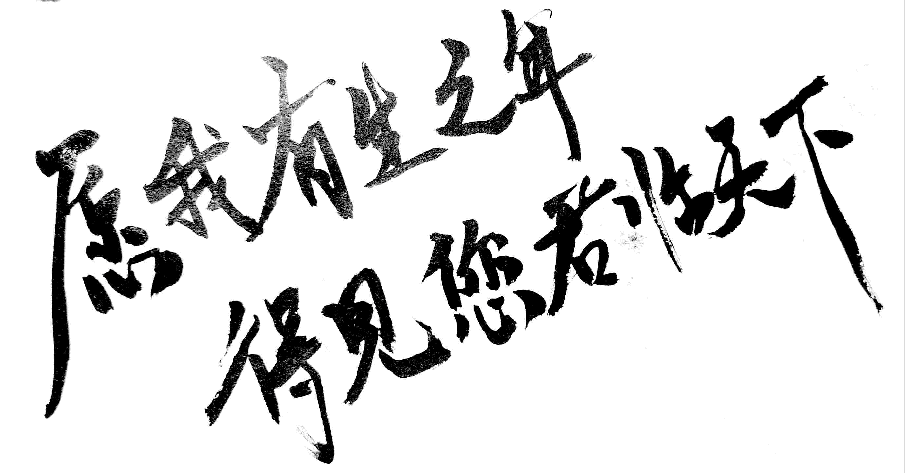 愿我有生之年
得见您君临天下